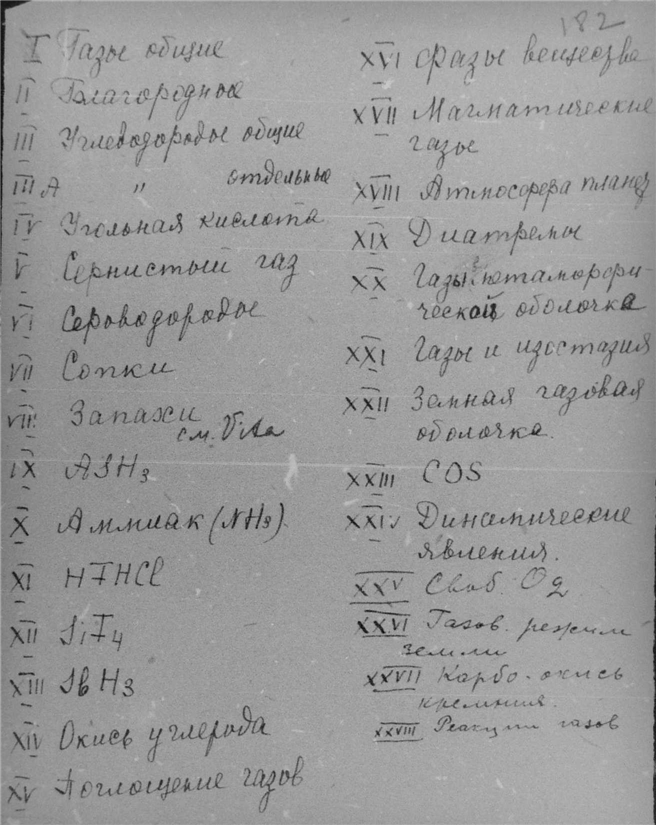 182
I Газы общие
II Благородные
III Углеводороды общие
III A " отдельные
IV Угольная кислота
V Сернистый газ
VI Сероводороды
VII Сопки
VIII Запахи
см. VIIa
IX ASH3
X Аммиак (NH3)
XI HFHCl
XII SiF4
XIII SbH3
XIV Окись углерода
XV Поглощение газов
XVI Фазы вещества
XVII Магматические
газы
XVIII Атмосфера планет
XIX Диатремы
XX Газы
ческой оболочка
XXI Газы и изостазия
XXII Земная газовая
оболочка.
XXIII COS
XXIV Динамические
явления.
XXV Своб. O2
XXVI Газов. режим
земли
XXVII Карбо-окись
кремния.
XXVIII Реакции газов